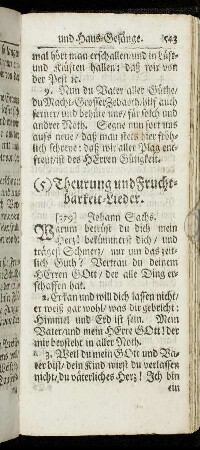 und Haus-Gesänge. 543
mal hört man erschallen/und in Lüft-
und Klüften hallen: daß wir von
der Pest ꝛc.
9. Nun du Vater aller Güthe/
du Macht-Grosser Zebaoth/hilf auch
ferner/und behüte uns/ für solch und
andrer Noth. Segne nun jetzt uns
aufs neue/ daß man stets hier fröh-
lich schreye: daß wir/ aller Plag ent-
freyt/ ist des HErren Gütigkeit.
(5) Theurung und Frucht-
barkeit-Lieder.
[379] Johann Sachs.
Warum betrübst du dich mein
Hertz? bekümmerst dich/ und
trägest Schmertz/ nur um das zeit-
lich Guth? Vertrau du deinem
HErren GOtt/ der alle Ding er-
schaffen hat.
2. Er kan und will dich lassen nicht/
er weiß gar wohl/ was dir gebricht:
Himmel und Erd ist sein. Mein
Vater/und mein HErre GOtt! der
mir beysteht in aller Noth.
3. Weil du mein GOtt und Va-
ter bist/ dein Kind wirst du verlassen
nicht/ du väterliches Hertz! Ich bin
ein